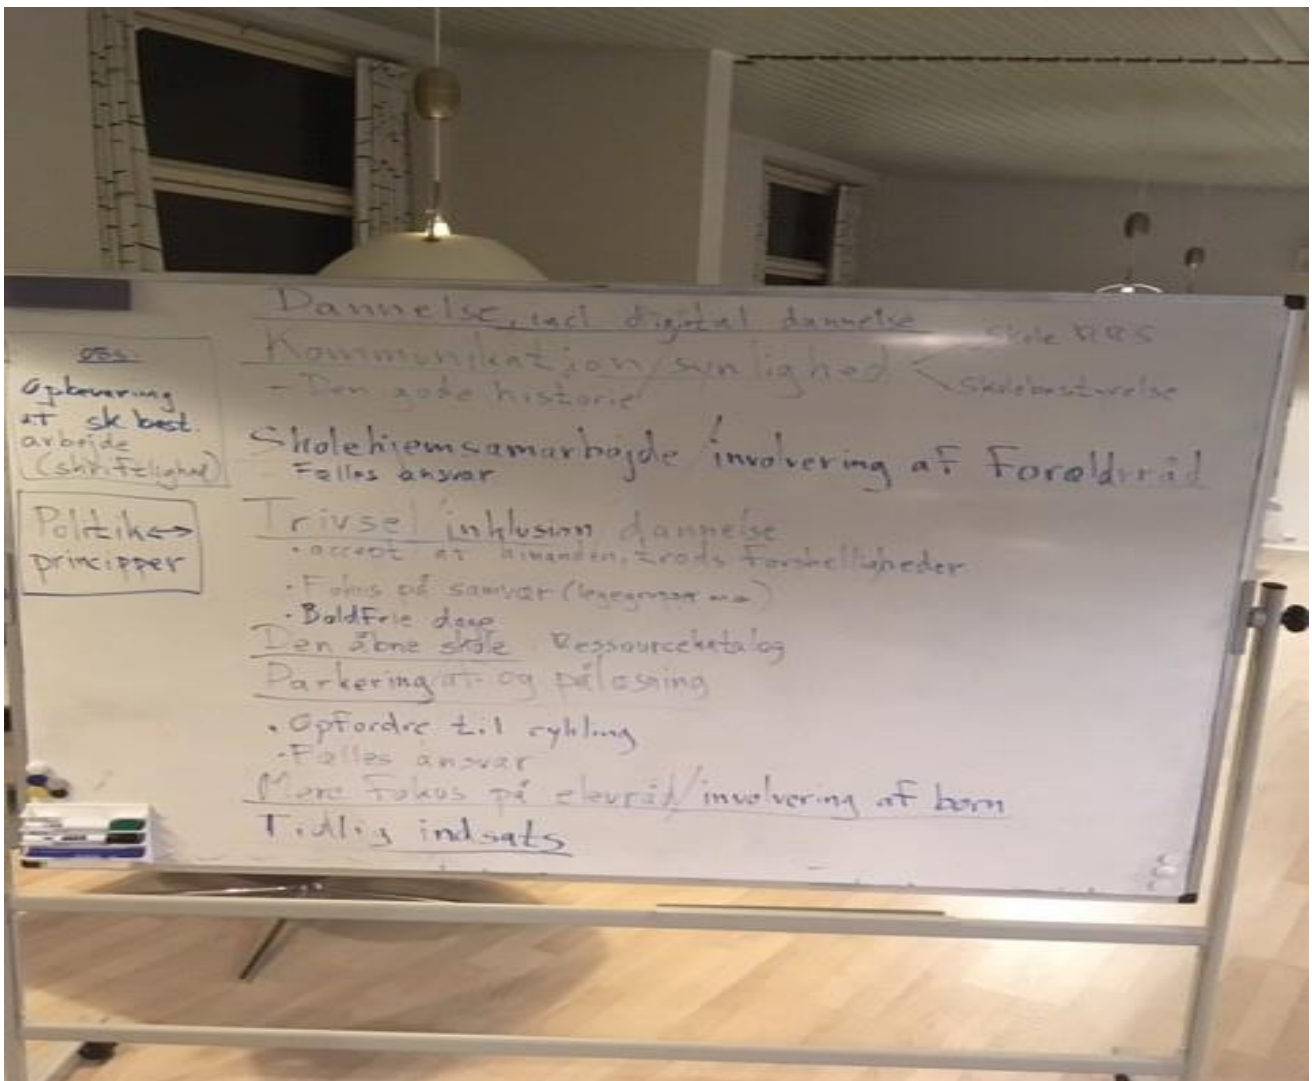 OBS:
Opbevaring
af sk best.
arbejde
(skriftlighed)
Politik ↔
principper
Dannelse, incl digital dannelse
Kommunikation/synlighed
Skole
Skolebestyrelse
- Den gode historie
Skolehjemsamarbejde/involvering af Forældreråd
- Fælles ansvar
Trivsel/inklusion dannelse
• accept af hinanden, trods forskelligheder
• Fokus på samvær (legegrupper
• Boldfrie dage
Den åbne skole Ressourcekatalog
Parkering af- og pålæsning
• Opfordre til cykling
• Fælles ansvar
Mere fokus på elevråd/involvering af børn
Tidlig indsats